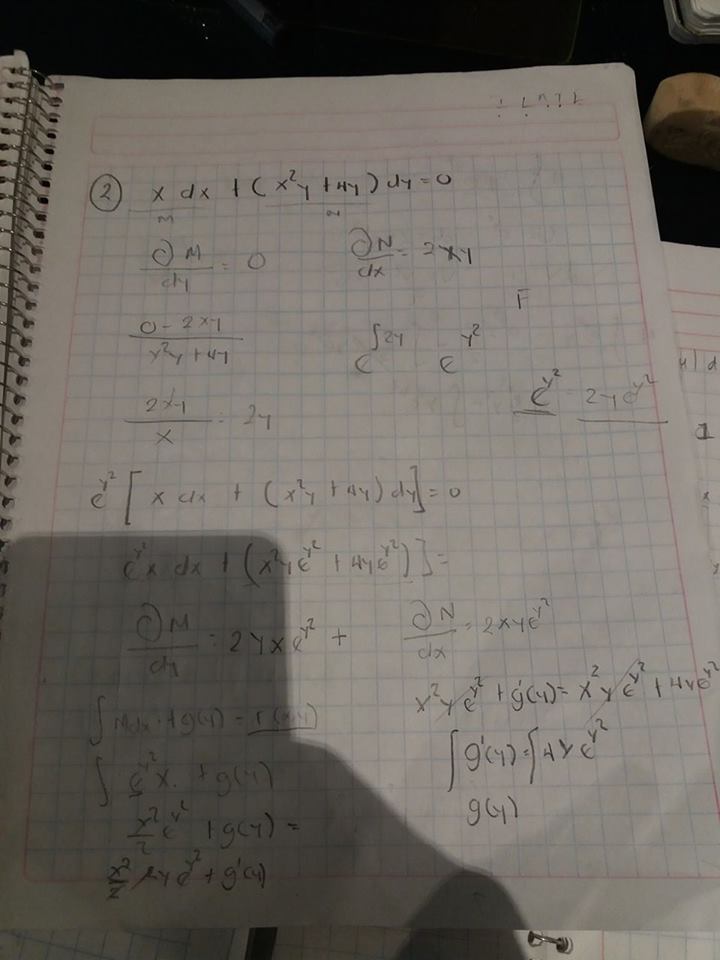 ② x dx + (x²y + 4y) dy = 0
M N
∂M/dy = 0 ∂N/dx = 2xy
F
(0 - 2xy)/(x²y + 4y) e^∫2y e^y²
e^y² 2ye^y²
2xy/x = 2y
e^y² [ x dx + (x²y + 4y) dy ] = 0
e^y² x dx + (x²ye^y² + 4ye^y²) ] =
∂M/dy = 2yxe^y² + ∂N/dx = 2xye^y²
x²ye^y² + g'(y) = x²ye^y² + 4ye^y²
∫ Mdx + g(y) = f(x,y)
∫ g'(y) = ∫ 4ye^y²
∫ e^y² x + g(y)
g(y)
x²/2 e^y² + g(y) =
x²/2 2ye^y² + g'(y)